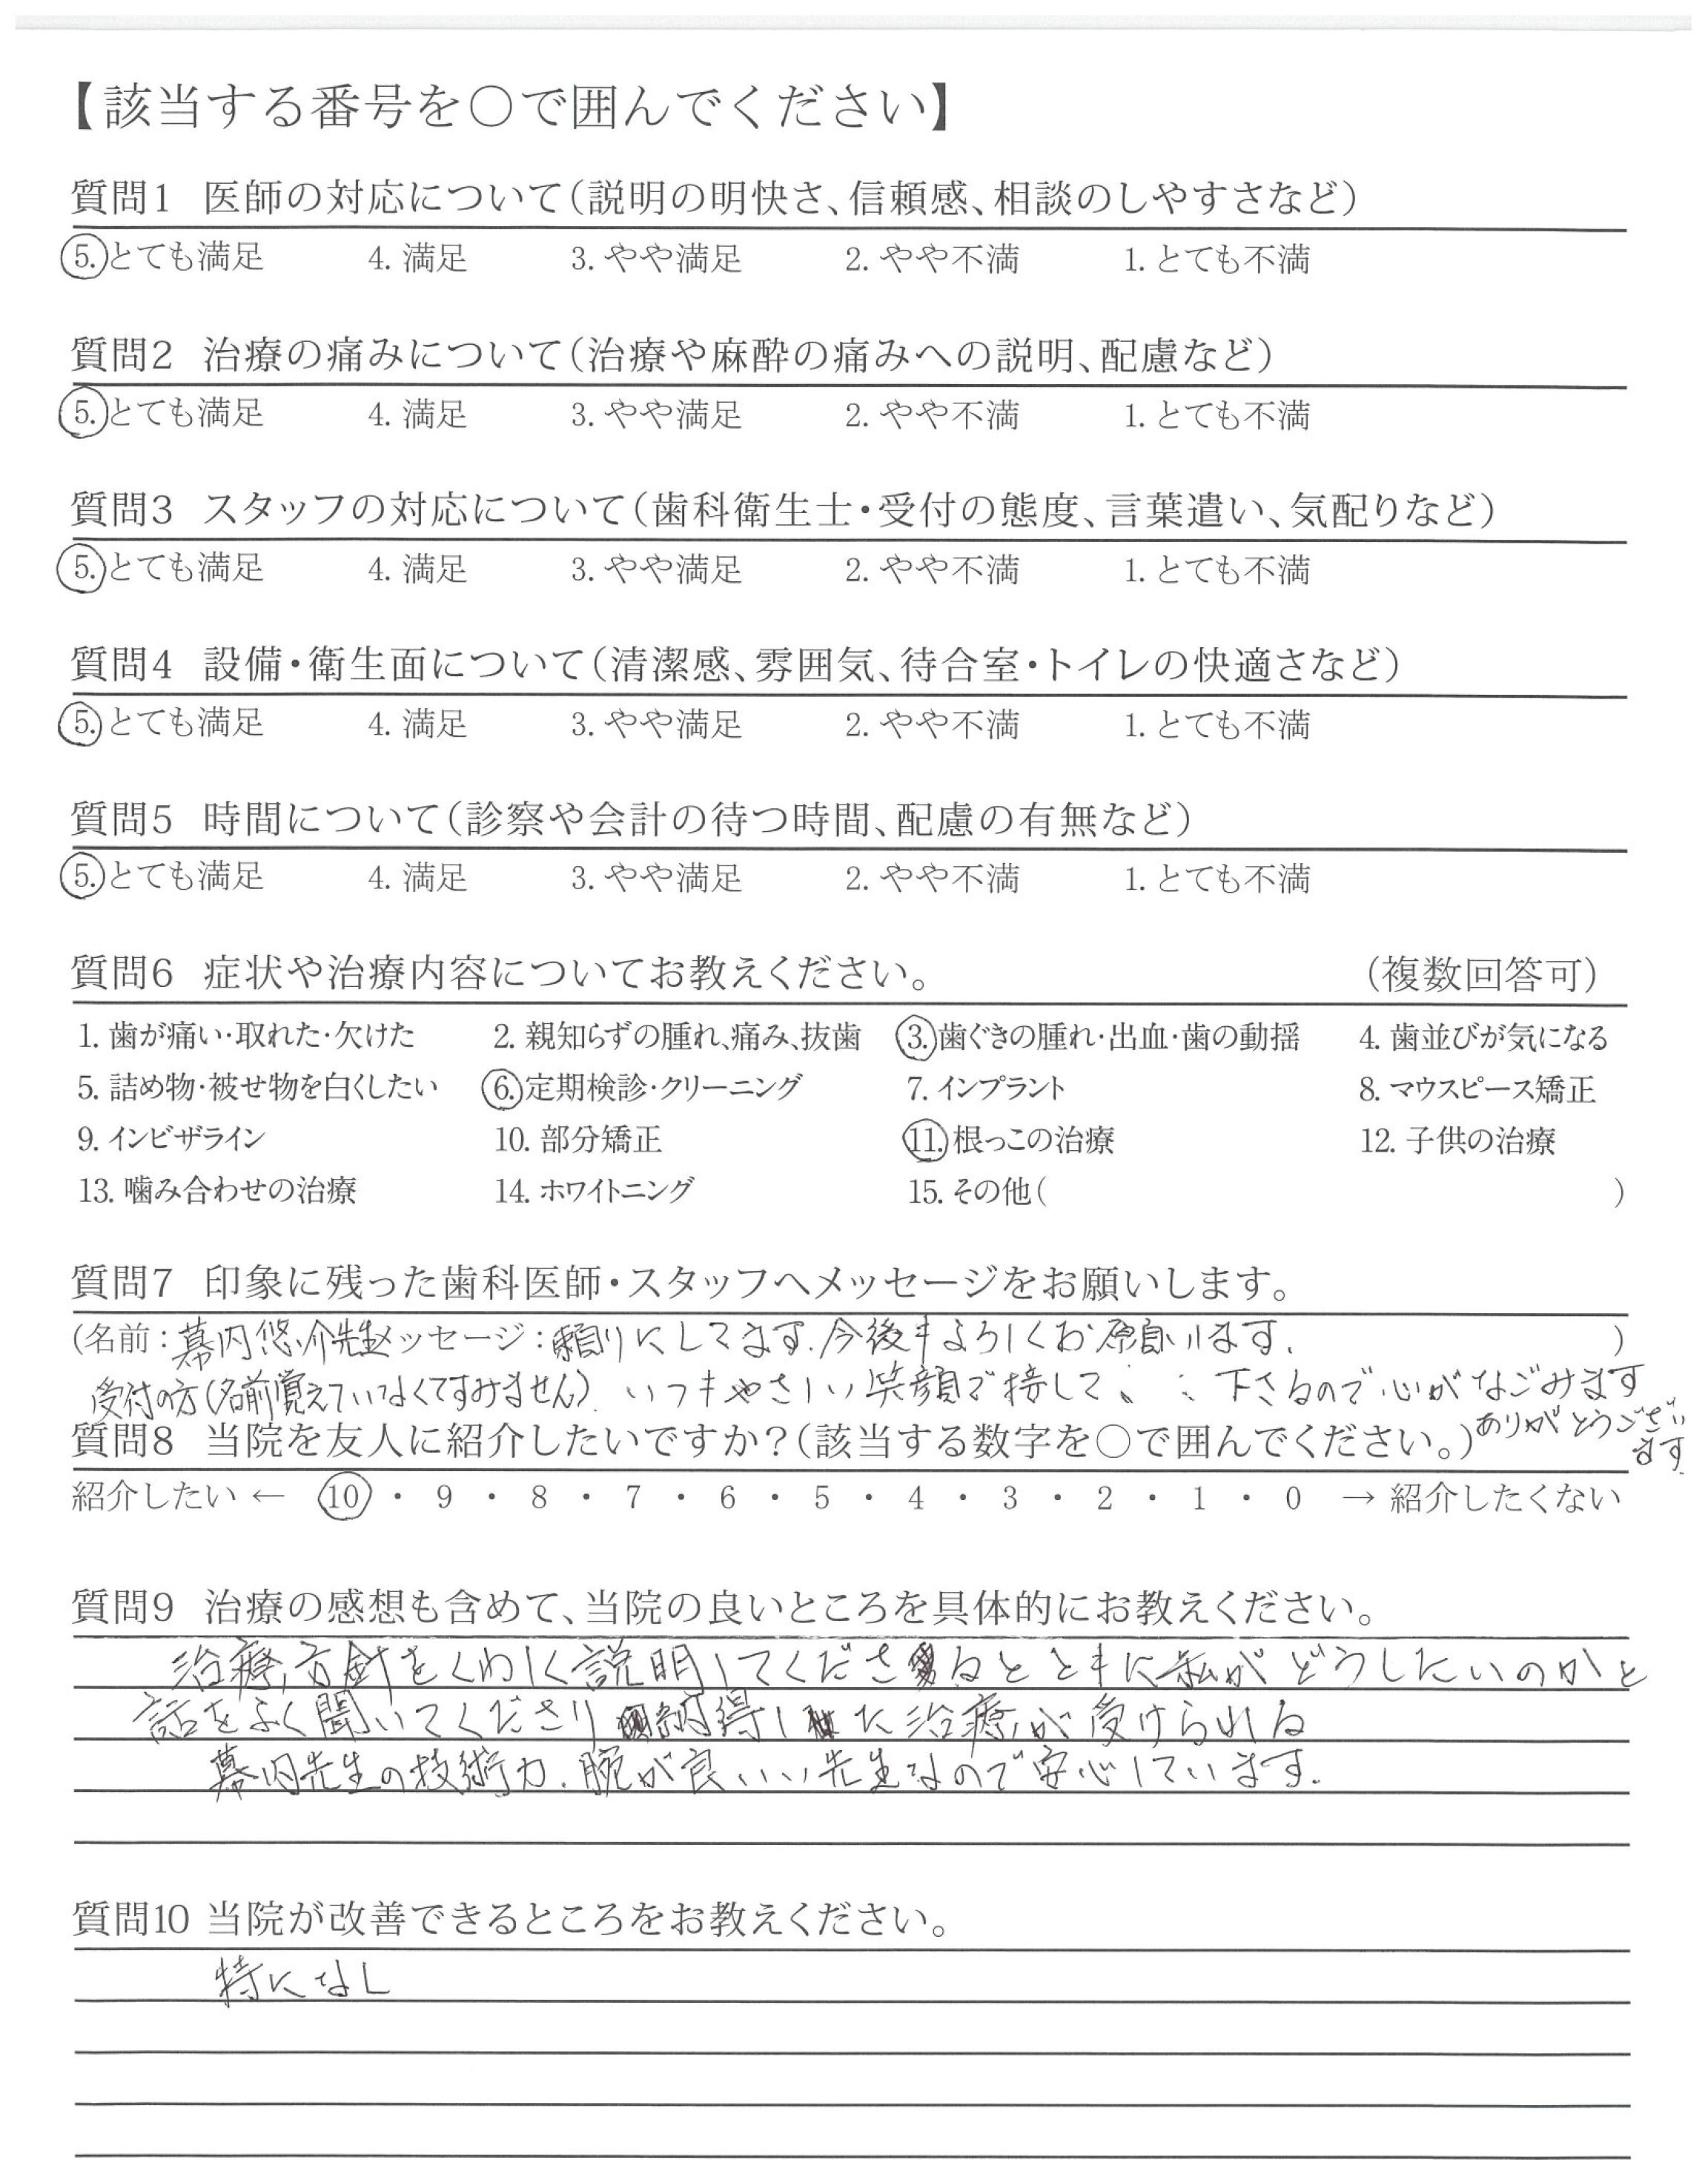 【該当する番号を○で囲んでください】
質問1 医師の対応について(説明の明快さ、信頼感、相談のしやすさなど)
5. とても満足 4. 満足 3. やや満足 2. やや不満 1. とても不満
質問2 治療の痛みについて(治療や麻酔の痛みへの説明、配慮など)
5. とても満足 4. 満足 3. やや満足 2. やや不満 1. とても不満
質問3 スタッフの対応について(歯科衛生士・受付の態度、言葉遣い、気配りなど)
5. とても満足 4. 満足 3. やや満足 2. やや不満 1. とても不満
質問4 設備・衛生面について(清潔感、雰囲気、待合室・トイレの快適さなど)
5. とても満足 4. 満足 3. やや満足 2. やや不満 1. とても不満
質問5 時間について(診察や会計の待つ時間、配慮の有無など)
5. とても満足 4. 満足 3. やや満足 2. やや不満 1. とても不満
質問6 症状や治療内容についてお教えください。 (複数回答可)
1. 歯が痛い・取れた・欠けた 2. 親知らずの腫れ、痛み、抜歯 3. 歯ぐきの腫れ・出血・歯の動揺 4. 歯並びが気になる
5. 詰め物・被せ物を白くしたい 6. 定期検診・クリーニング 7. インプラント 8. マウスピース矯正
9. インビザライン 10. 部分矯正 11. 根っこの治療 12. 子供の治療
13. 噛み合わせの治療 14. ホワイトニング 15. その他( )
質問7 印象に残った歯科医師・スタッフへメッセージをお願いします。
(名前：幕内悠介先生メッセージ：頼りにしてます.今後もよろしくお願いします. )
受付の方(名前覚えていなくてすみません). いつもやさしい笑顔で接して下さるので心がなごみます
ありがとうござい
ます.
質問8 当院を友人に紹介したいですか?(該当する数字を○で囲んでください。)
紹介したい ← 10 ・ 9 ・ 8 ・ 7 ・ 6 ・ 5 ・ 4 ・ 3 ・ 2 ・ 1 ・ 0 → 紹介したくない
質問9 治療の感想も含めて、当院の良いところを具体的にお教えください。
治療、方針をくわしく説明してくださるとともに私がどうしたいのかと
話をよく聞いてくださり 納得した治療が受けられる
幕内先生の技術力.腕が良いい先生なので安心しています.
質問10 当院が改善できるところをお教えください。
特になし